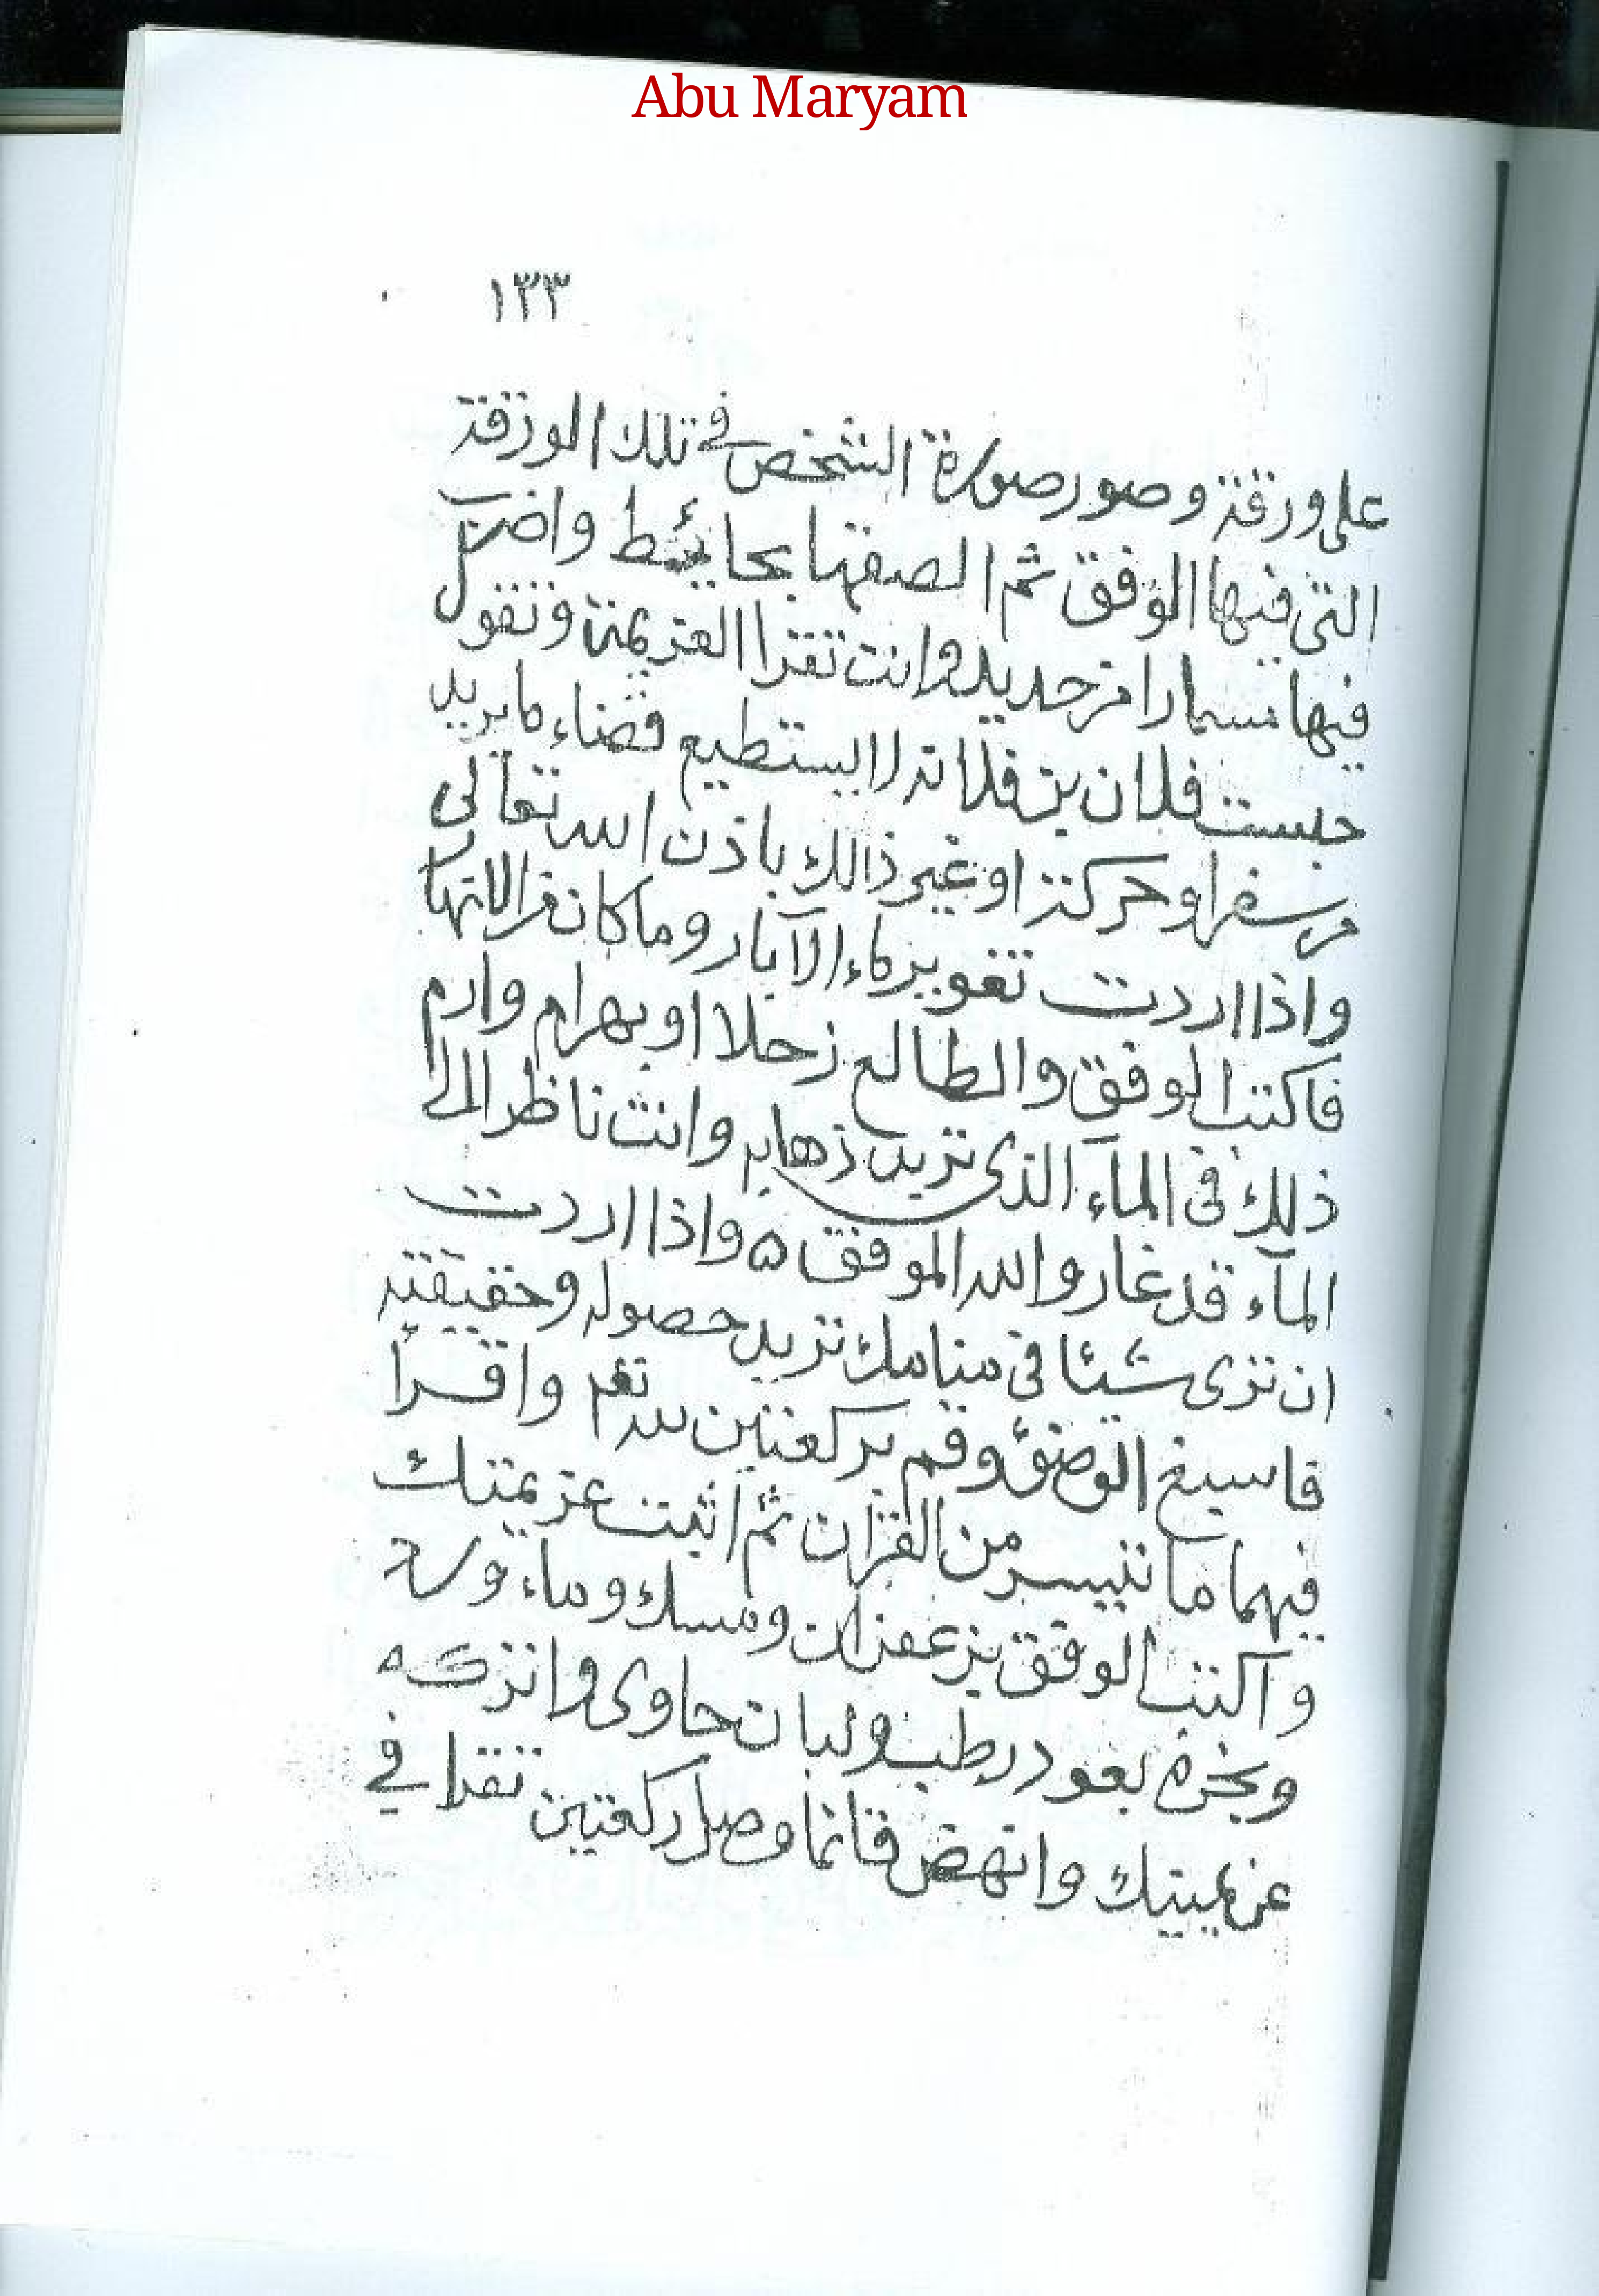 Abu Maryam
١٣٣
على ورقة وصور صورة الشخص في تلك الورقة
التى فيها الوفق ثم الصقها بحائط واضرب
فيها مسمارا من حديد وانت تقرا العزيمة وتقول
حبست فلان بن فلانة لا يستطيع قضاء ما يريد
من سفر او حركة او غير ذالك باذن الله تعالى
واذا اردت تغوير ماء الآبار وما كان من الانهار
فاكتب الوفق والطالع زحلا او بهرام وارم
ذلك فى الماء الذى تريد ذهابه وانت ناظر الى
المآء قد غار والله الموفق ه واذا اردت
ان ترى شيئا فى منامك تريد حصوله وحقيقته
فاسبغ الوضوء وقم بركعتين لله تعم واقرأ
فيهما ما تيسر من القران ثم اثبت عزيمتك
وآكتب الوفق بزعفران ومسك وماء ورد
وبخره بعود رطب ولبان جاوى واتركه
عن يمينك وانهض قائما وصل ركعتين تقرا في